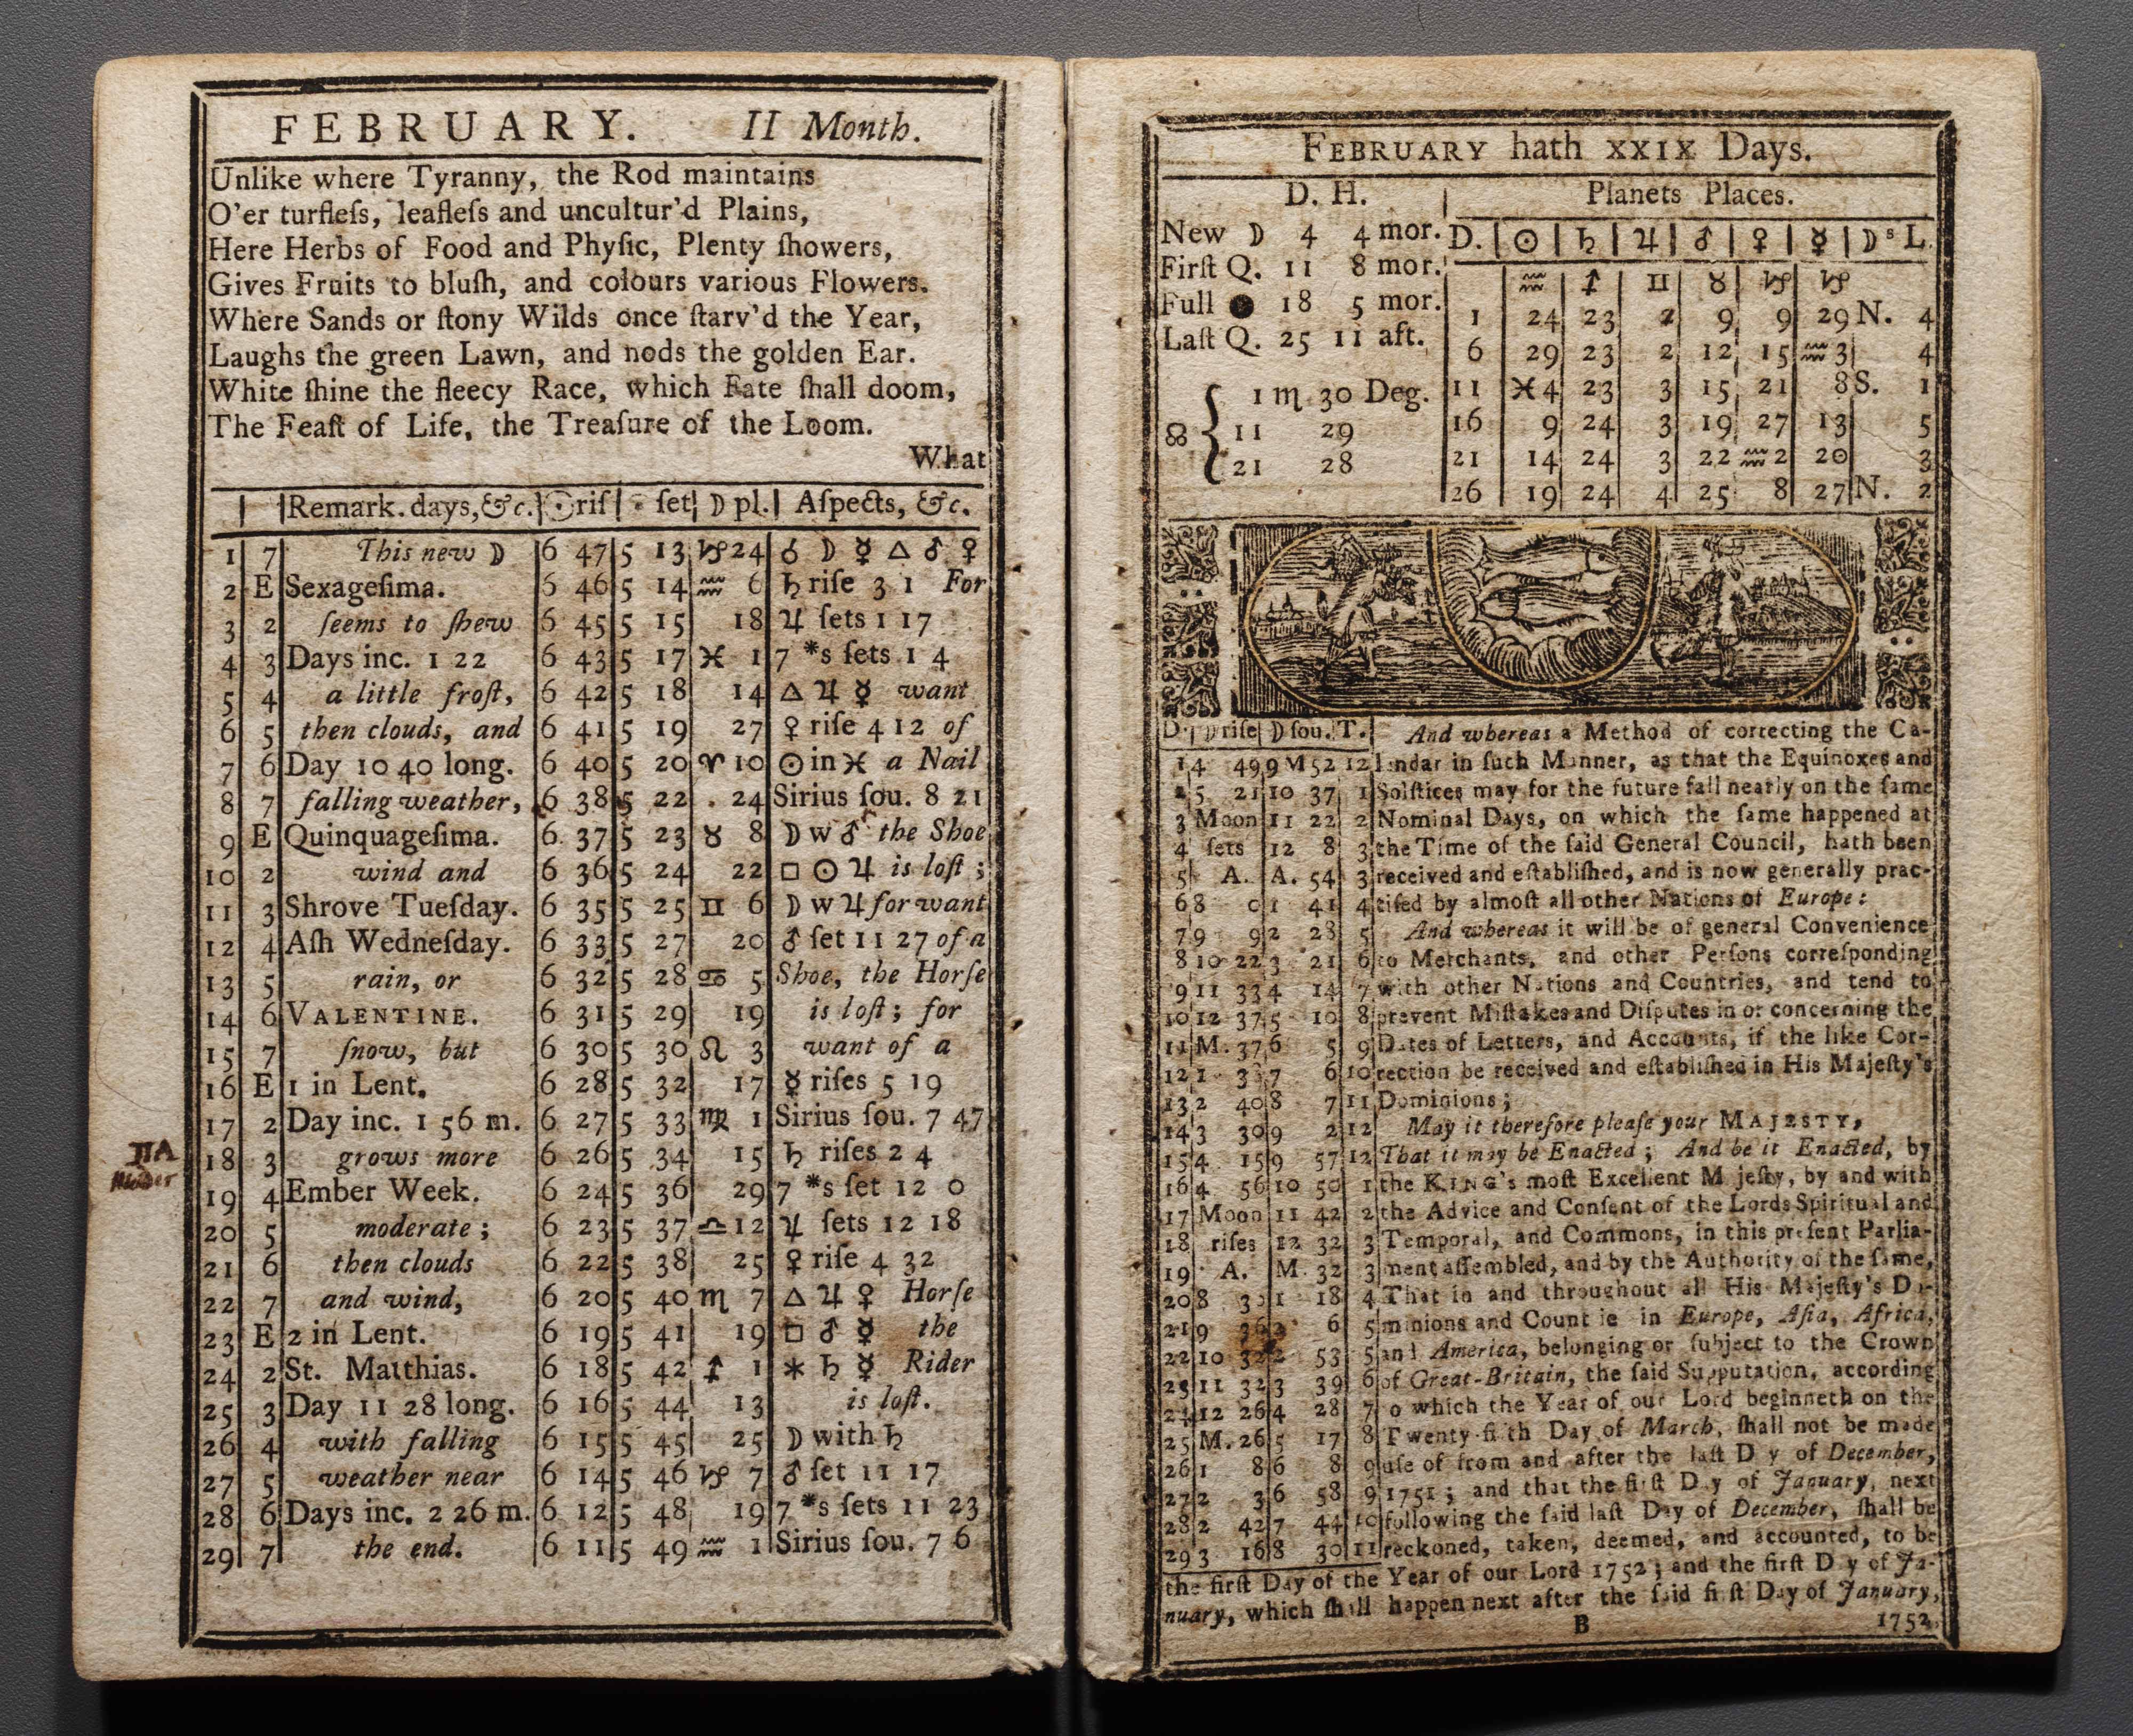 FEBRUARY. II Month.
Unlike where Tyranny, the Rod maintains
O'er turfleſs, leafleſs and uncultur'd Plains,
Here Herbs of Food and Phyſic, Plenty ſhowers,
Gives Fruits to bluſh, and colours various Flowers.
Where Sands or ſtony Wilds once ſtarv'd the Year,
Laughs the green Lawn, and nods the golden Ear.
White ſhine the fleecy Race, which Fate ſhall doom,
The Feaſt of Life, the Treaſure of the Loom.
What
Remark. days, &c. ☉ riſ ☉ ſet ☽ pl. Aſpects, &c.
1 7 This new ☽ 6 47 5 13 ♑ 24 ☌ ☽ ☿ △ ♂ ♀
2 E Sexageſima. 6 46 5 14 ♒ 6 ♄ riſe 3 1 For
3 2 ſeems to ſhew 6 45 5 15 18 ♃ ſets 1 17
4 3 Days inc. 1 22 6 43 5 17 ♓ 1 7 *s ſets 1 4
5 4 a little froſt, 6 42 5 18 14 △ ♃ ☿ want
6 5 then clouds, and 6 41 5 19 27 ♀ riſe 4 12 of
7 6 Day 10 40 long. 6 40 5 20 ♈ 10 ☉ in ♓ a Nail
8 7 falling weather, 6 38 5 22 24 Sirius ſou. 8 21
9 E Quinquageſima. 6 37 5 23 ♉ 8 ☽ w ♂ the Shoe
10 2 wind and 6 36 5 24 22 □ ☉ ♃ is loſt;
11 3 Shrove Tueſday. 6 35 5 25 ♊ 6 ☽ w ♃ for want
12 4 Aſh Wedneſday. 6 33 5 27 20 ♂ ſet 11 27 of a
13 5 rain, or 6 32 5 28 ♋ 5 Shoe, the Horſe
14 6 VALENTINE. 6 31 5 29 19 is loſt; for
15 7 ſnow, but 6 30 5 30 ♌ 3 want of a
16 E 1 in Lent. 6 28 5 32 17 ☿ riſes 5 19
17 2 Day inc. 1 56 m. 6 27 5 33 ♍ 1 Sirius ſou. 7 47
18 3 grows more 6 26 5 34 15 ♄ riſes 2 4
19 4 Ember Week. 6 24 5 36 29 7 *s ſet 12 0
20 5 moderate; 6 23 5 37 ♎ 12 ♃ ſets 12 18
21 6 then clouds 6 22 5 38 25 ♀ riſe 4 32
22 7 and wind, 6 20 5 40 ♏ 7 △ ♃ ♀ Horſe
23 E 2 in Lent. 6 19 5 41 19 □ ♂ ☿ the
24 2 St. Matthias. 6 18 5 42 ♐ 1 ⚹ ♄ ☿ Rider
25 3 Day 11 28 long. 6 16 5 44 13 is loſt.
26 4 with falling 6 15 5 45 25 ☽ with ♄
27 5 weather near 6 14 5 46 ♑ 7 ♂ ſet 11 17
28 6 Days inc. 2 26 m. 6 12 5 48 19 7 *s ſets 11 23
29 7 the end. 6 11 5 49 ♒ 1 Sirius ſou. 7 6
FEBRUARY hath XXIX Days.
D. H.
New ☽ 4 4 mor.
Firſt Q. 11 8 mor.
Full ● 18 5 mor.
Laſt Q. 25 11 aft.
☊ 1 ♏ 30 Deg.
11 29
21 28
Planets Places.
D. ☉ ♄ ♃ ♂ ♀ ☿ ☽s L.
♒ ♐ ♊ ♉ ♑ ♑
1 24 23 2 9 9 29 N. 4
6 29 23 2 12 15 ♒ 3 4
11 ♓ 4 23 3 15 21 8 S. 1
16 9 24 3 19 27 13 5
21 14 24 3 22 ♒ 2 20 3
26 19 24 4 25 8 27 N. 2
D. ☽ riſe ☽ ſou. T.
1 4 49 9 M 52 12
2 5 21 10 37 1
3 Moon 11 22 2
4 ſets 12 8 3
5 A. A. 54 3
6 8 0 1 41 4
7 9 9 2 28 5
8 10 22 3 21 6
9 11 33 4 14 7
10 12 37 5 10 8
11 M. 37 6 5 9
12 1 3 7 6 10
13 2 40 8 7 11
14 3 30 9 2 12
15 4 15 9 57 12
16 4 56 10 50 1
17 Moon 11 42 2
18 riſes 12 32 3
19 A. M. 32 3
20 8 1 18 4
21 9 6 5
22 10 32 2 53 5
23 11 32 3 39 6
24 12 26 4 28 7
25 M. 26 5 17 8
26 1 8 6 8 9
27 2 3 6 58 9
28 2 42 7 44 10
29 3 16 8 30 11
And whereas a Method of correcting the Ca-
lendar in ſuch Manner, as that the Equinoxes and
Solſtices may for the future fall nearly on the ſame
Nominal Days, on which the ſame happened at
the Time of the ſaid General Council, hath been
received and eſtabliſhed, and is now generally prac-
tiſed by almoſt all other Nations of Europe:
And whereas it will be of general Convenience
to Merchants, and other Perſons correſponding
with other Nations and Countries, and tend to
prevent Miſtakes and Diſputes in or concerning the
Dates of Letters, and Accounts, if the like Cor-
rection be received and eſtabliſhed in His Majeſty's
Dominions;
May it therefore pleaſe your MAJESTY,
That it may be Enacted; And be it Enacted, by
the KING's moſt Excellent M jeſty, by and with
the Advice and Conſent of the Lords Spiritual and
Temporal, and Commons, in this preſent Parlia-
ment aſſembled, and by the Authority of the ſame,
That in and throughout all His Majeſty's Do-
minions and Count ie in Europe, Aſia, Africa,
and America, belonging or ſubject to the Crown
of Great-Britain, the ſaid Supputation, according
o which the Year of our Lord beginneth on the
Twenty-fi th Day of March, ſhall not be made
uſe of from and after the laſt D y of December,
1751; and that the firſt D y of January, next
following the ſaid laſt Day of December, ſhall be
reckoned, taken, deemed, and accounted, to be
the firſt Day of the Year of our Lord 1752; and the firſt D y of Ja-
nuary, which ſhall happen next after the ſaid firſt Day of January,
B 1752,